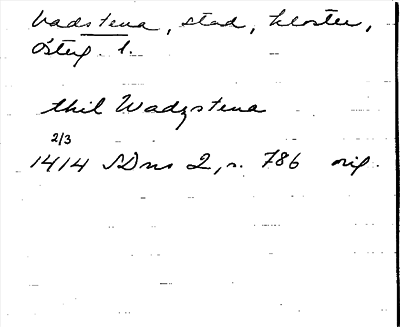 Vadstena, stad, kloster,
Östg. l.
thil Wadzstena
2/3
1414 SDns 2, s. 786 orig.